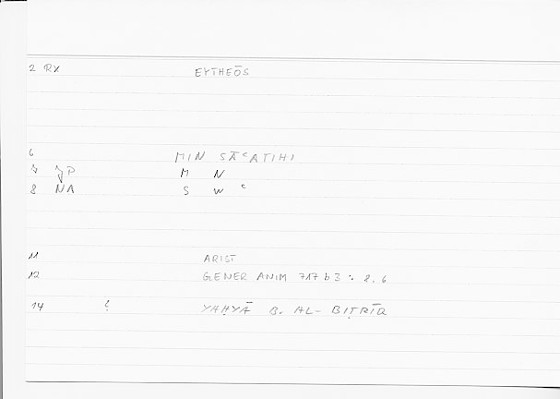 2 RX EYTHEŌS
6 MIN SĀʿATIHI
7 JP M N
8 NA S W ʿ
11 ARIST
12 GENER ANIM 717 b 3 : 2.6
14 ? YAḤYĀ B. AL-BIṬRĪQ